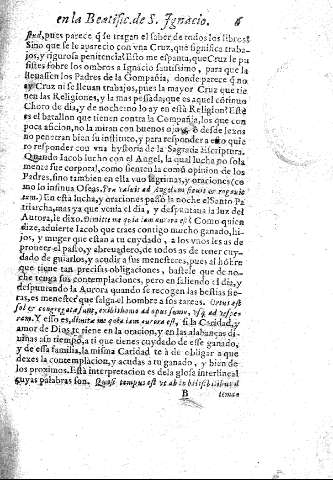 en la Beatific. de S. Ignacio. 6
pues parece q̃ se tragan el saber de todos los libros?
Sino que se le aparecio con vna Cruz, que significa traba-
jos, y rigurosa penitencia? Esto me espanta, que Cruz le pu
sistes sobre los ombros a Ignacio santissimo, para que la
lleuassen los Padres de la Compañia, donde parece que no
ay Cruz ni se lleuan trabajos, pues la mayor Cruz que tie
nen las Religiones, y la mas pesada, que es aquel cõtinuo
Choro de dia, y de noche no lo ay en està Religion? Este
es el batallon que tienen contra la Compañia, los que con
poca aficion, no la miran con buenos ojos, o desde lexos
no penetran bien su instituto, y para responder a esto quie
ro responder con vna hystoria de la Sagrada Escriptura.
Quando Iacob lucho con el Angel, la qual lucha no sola
mente fue corporal, como sienten la comũ opinion de los
Padres, sino tambien en ella vuo lagrimas, y oraciones (co
mo lo insinua Oseas,
tum.) En esta lucha, y oraciones passò la noche el Santo Pa
triarcha, mas ya que venia el dia, y despuntaua la luz del
Aurora, le dixo. Dimitte me iam aurora est? Como quien
dize, aduierte Iacob que traes contigo mucho ganado, hi-
jos, y muger que estan a tu cuydado, a los vnos les as de
proueer el pasto, y abreuadero, de todos as de tener cuy-
dado de guiarlos, y acudir a sus menesteres, pues al hõbre
que tiene tan precisas obligaciones, bastele que de no-
che tenga sus contemplaciones, pero en saliendo el dia, y
despuntando la Aurora quando se recogen las bestias fie-
ras, es menester que salga el hombre a sus tareas. Ortus est
sol & congregati sunt, exibit homo ad opus suum, vsq̃ ad vespe-
ram. Y esso es, dimitte me iam aurora est, si la Caridad, y
amor de Dios te tiene en la oracion, y en las alabanças di-
uinas asu tiempo, a ti que tienes cuydado de esse ganado,
y de essa familia, la misma Caridad te à de obligar a que
dexes la contemplacion, y acudas a tu ganado, y bien de
los proximos. Està interpretacion es dela glosa interlineal
cuyas palabras son. Quasi tempus est vt ab
B